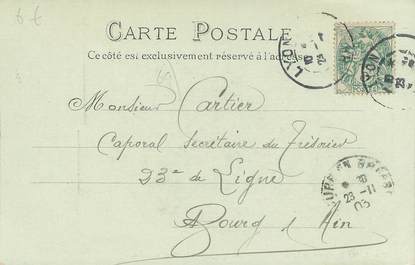 6 €
CARTE POSTALE
Ce côté est exclusivement réservé à l'adresse
LYON
LYON
Monsieur Cartier
Caporal Secrétaire du Trésorier
23e de Ligne
Bourg d Ain
23 -11
03